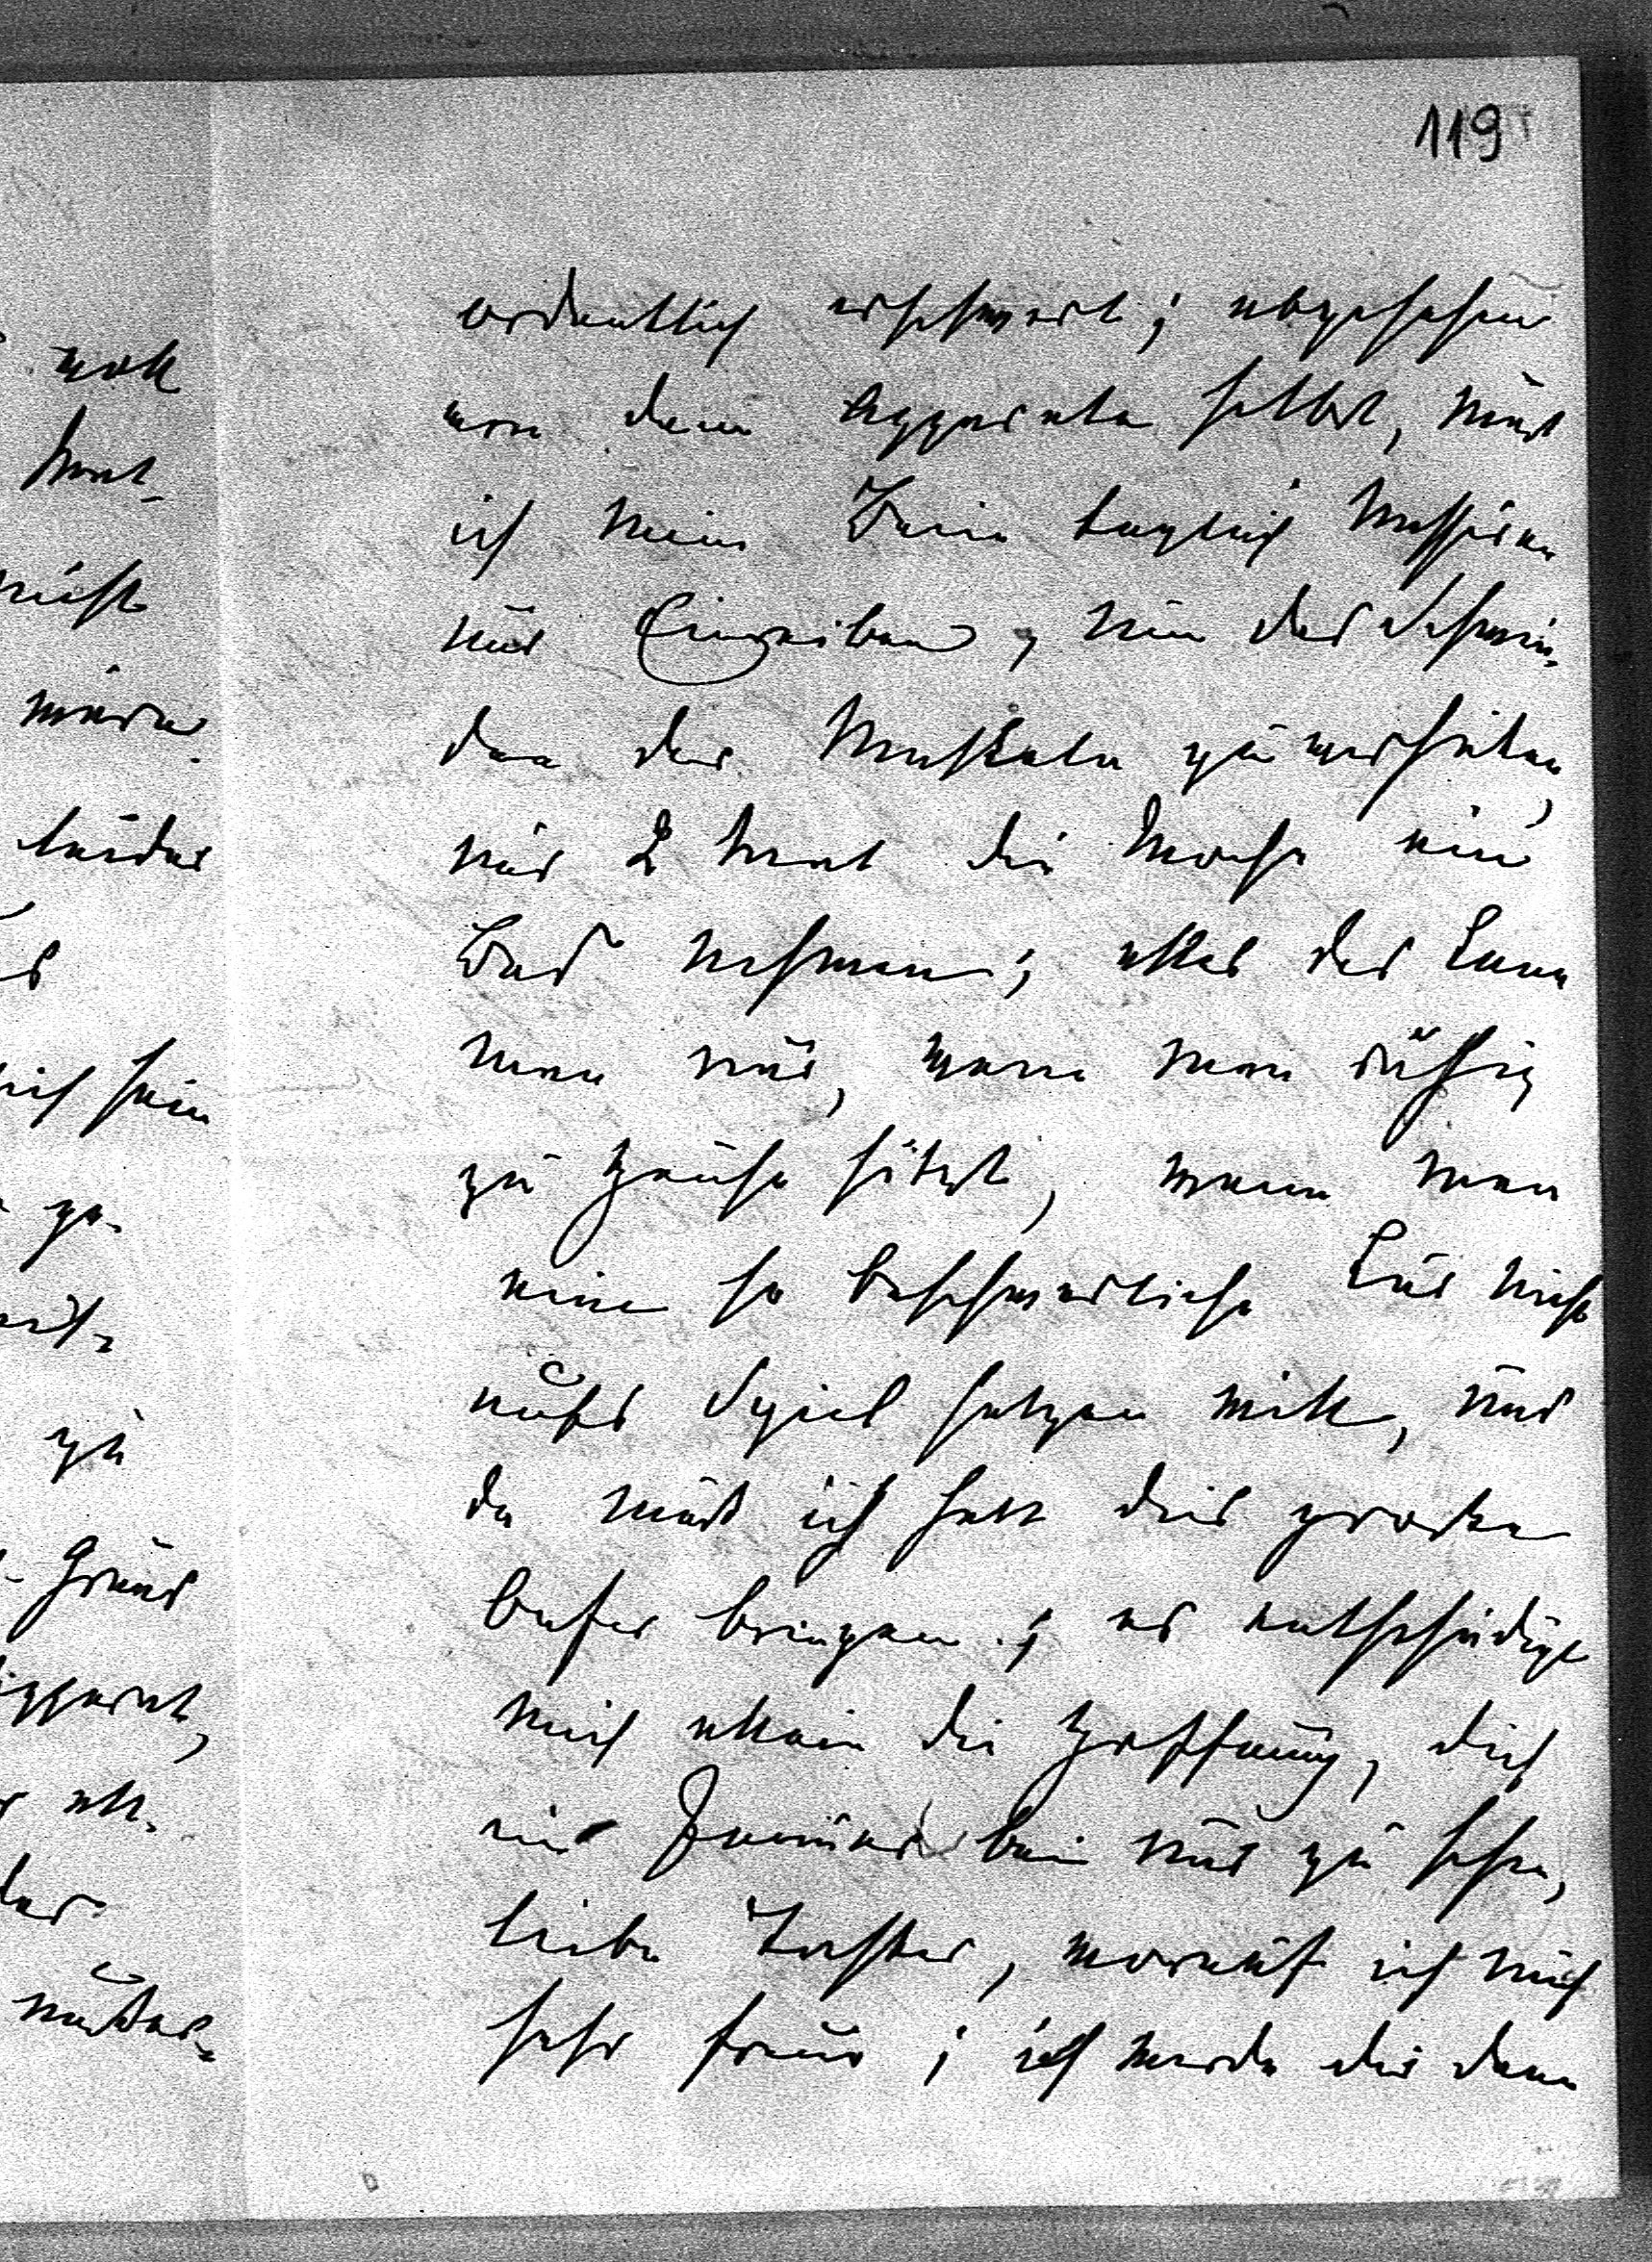 119
ordentlich erschwert; abgesehen
von dem Apparate selbst, muß
ich mein Bein taglich massiren
und Einreiben, um das Schwin-
den der Muskeln zu verhüten,
und 2 mal die Woche ein
Bad nehmen; alles das kann
man nur, wenn man ruhig
zu Hause sitzt, wenn man
eine so beschwerliche Kur nicht
aufs Spiel setzen will, und
da muß ich halt dies große
Opfer bringen; es entschädigt
mich allein die Hoffnung, dich
im Januar bei uns zu sehen,
liebe Tochter, worauf ich mich
sehr freue; ich werde dir dann
woll
mal-
nicht
wäre
leider
sein
ge-
zu
Grund
Apparat,
all-